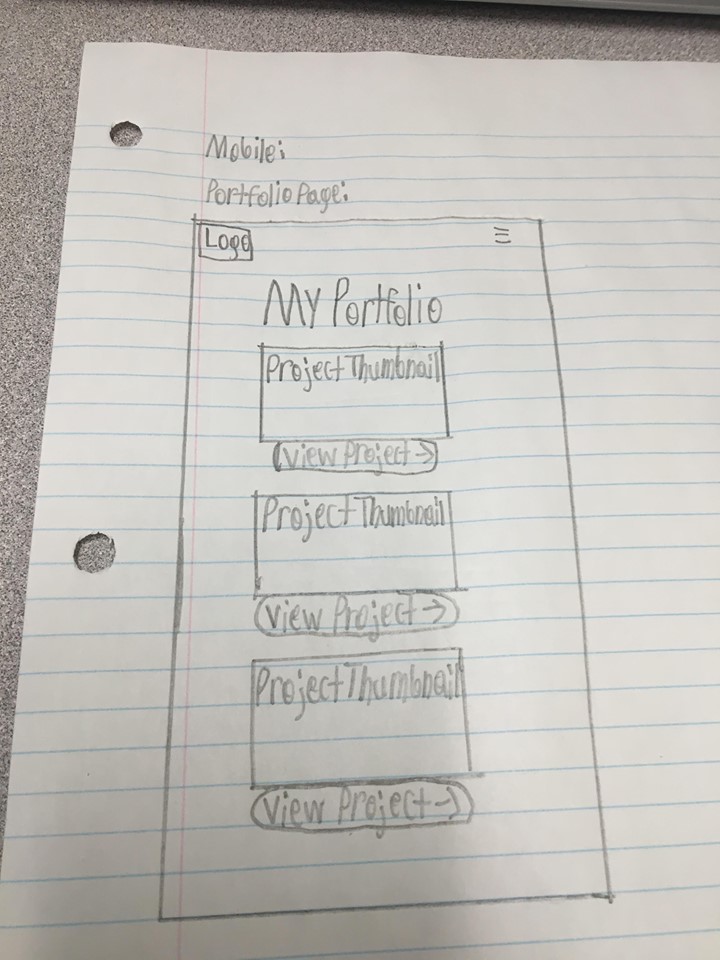 Mobile:
Portfolio Page:
Logo
My Portfolio
Project Thumbnail
View Project →
Project Thumbnail
View Project →
Project Thumbnail
View Project →